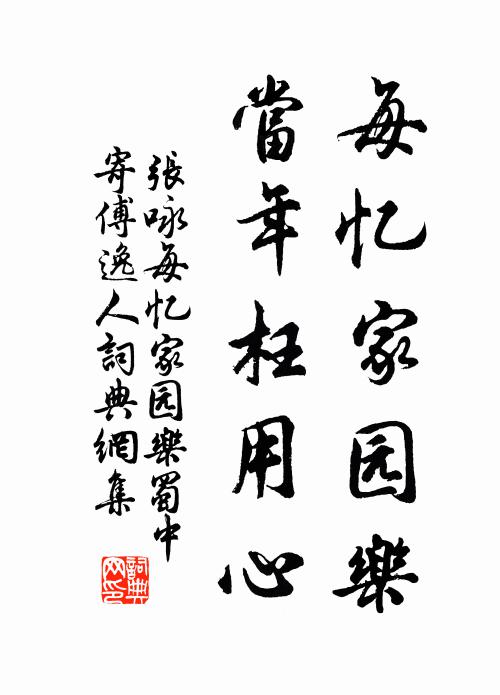 每忆家园樂
當年枉用心
張咏每忆家园樂蜀中
寄傅逸人詞典網集
詞典网印